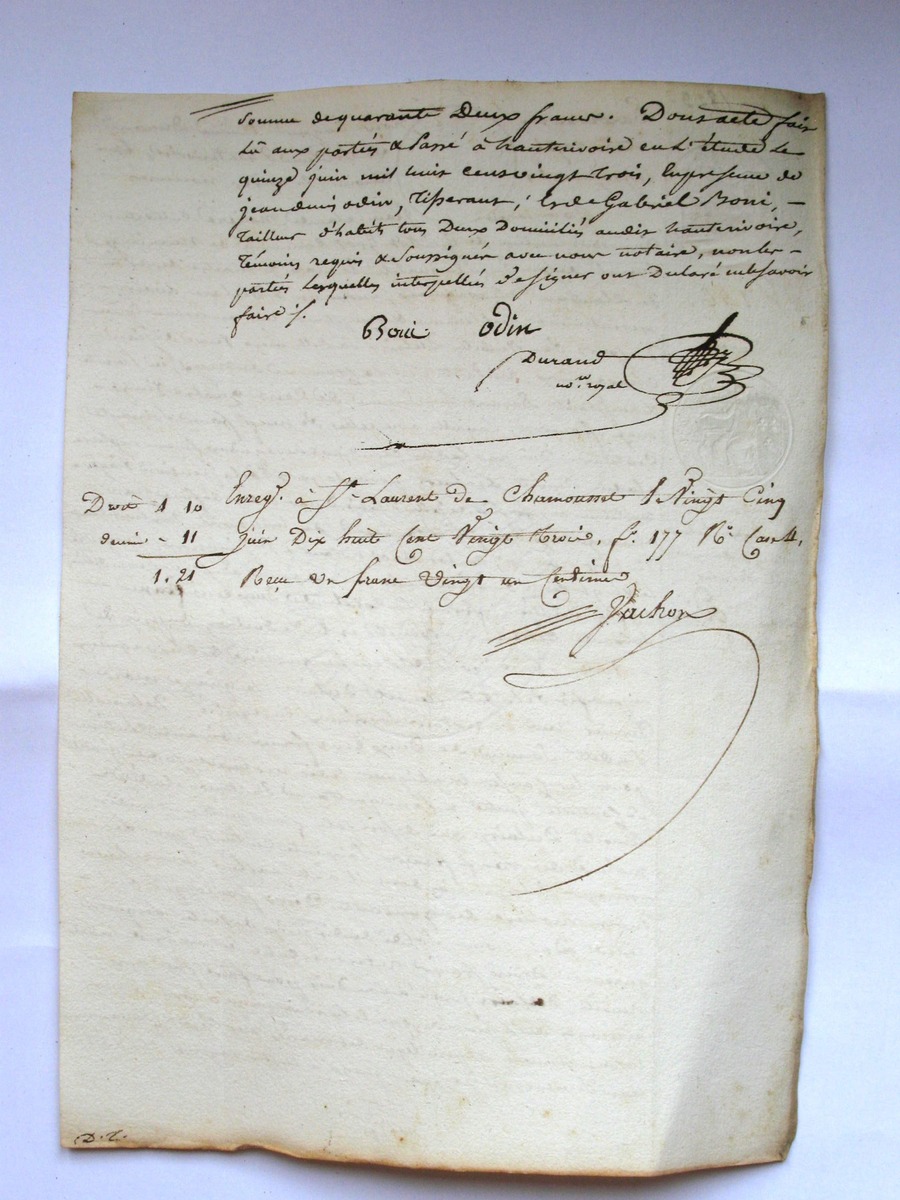 somme de quarante Deux francs. Dont acte fait
Lû aux parties & Passé à hauterivoire en L'étude Le
quinze juin mil huit cent vingt Trois, En presence de
jean denis odin, Tisserant, & de Gabriel Boni, —
Tailleur d'habits tous Deux Domiciliés audit hauterivoire,
Témoins requis & Soussignés avec nous notaire, non les —
parties Lesquelles interpellées de signer ont Declaré ne le savoir
faire ./.
Boni odin
Durand
no.re royal
Enreg.é à St. Laurent de Chamousset le Vingt Cinq
Droit 1 10
juin Dix huit Cent Vingt trois, f.o 177 R.o Case 4,
decime - 11
Reçu un franc vingt un Centimes
1. 21
Vachon